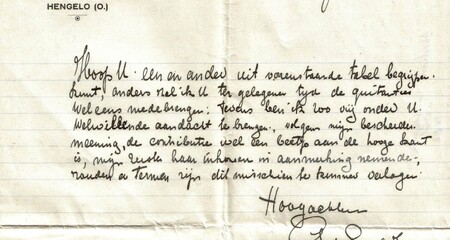 HENGELO (O.)
Hoop U een en ander uit vorenstaande tabel begrijpen
kunt, anders zal ik U te gelegener tijd de quitanties
wel eens medebrengen; tevens ben ik zoo vrij onder U.
Welwillende aandacht te brengen, volgens mijn bescheiden
meening, de contributie wel een beetje aan de hooge kant
is, mijn in aanmerking nemende,
en termen zijn dit misschien te kunnen verlagen.
Hoogachtend